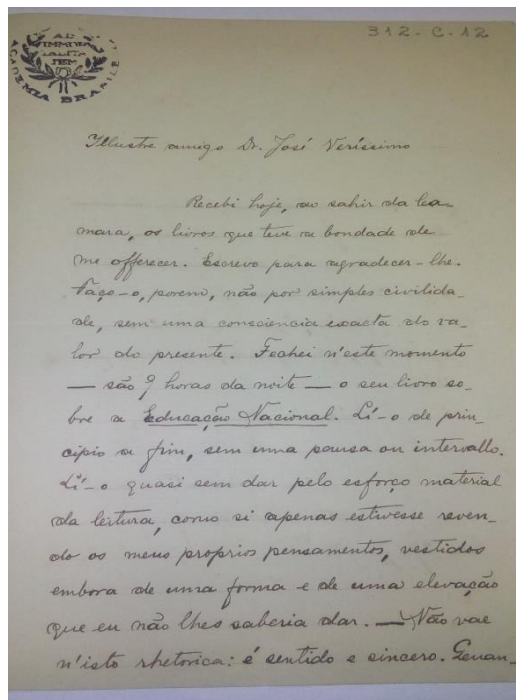 312-C-12
ACADEMIA BRASILE
AD
IMMOR
TALITA
TEM
Illustre amigo Dr. José Veríssimo
Recebi hoje, ao sahir da Ca-
mara, os livros que teve a bondade de
me offerecer. Escrevo para agradecer-lhe.
Faço-o, porem, não por simples civilida-
de, sem uma consciencia exacta do va-
lor do presente. Fechei n'este momento
— são 9 horas da noite — o seu livro so-
bre a Educação Nacional. Lí-o de prin-
cipio a fim, sem uma pausa ou intervallo.
Lí-o quasi sem dar pelo esforço material
da leitura, como si apenas estivesse reven-
do os meus proprios pensamentos, vestidos
embora de uma forma e de uma elevação
que eu não lhes saberia dar. — Não vae
n'isto rhetorica: é sentido e sincero.